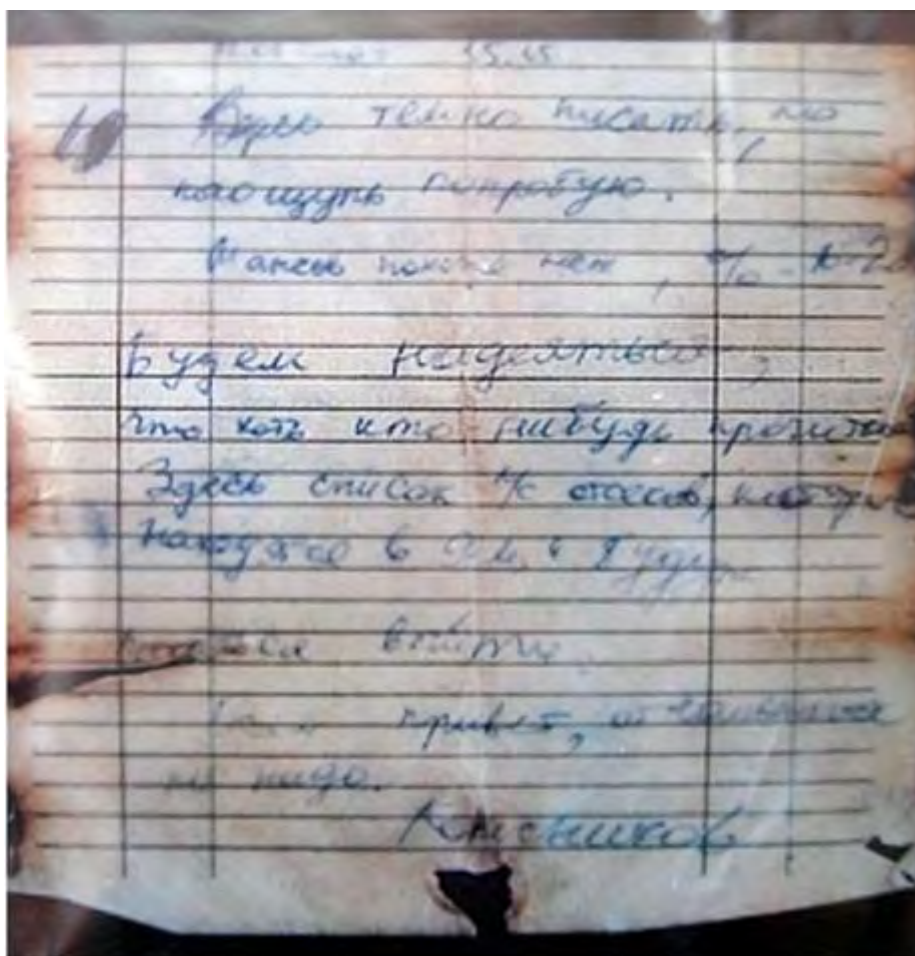 15.15
Здесь темно писать, но
наощупь попробую.
Шансов похоже нет, %
Будем надеяться,
что хоть кто нибудь прочитает
Здесь список л/с отсеков, которые
находятся в 9 и будут
выйти.
привет, отчаиваться
не надо.
Колесников